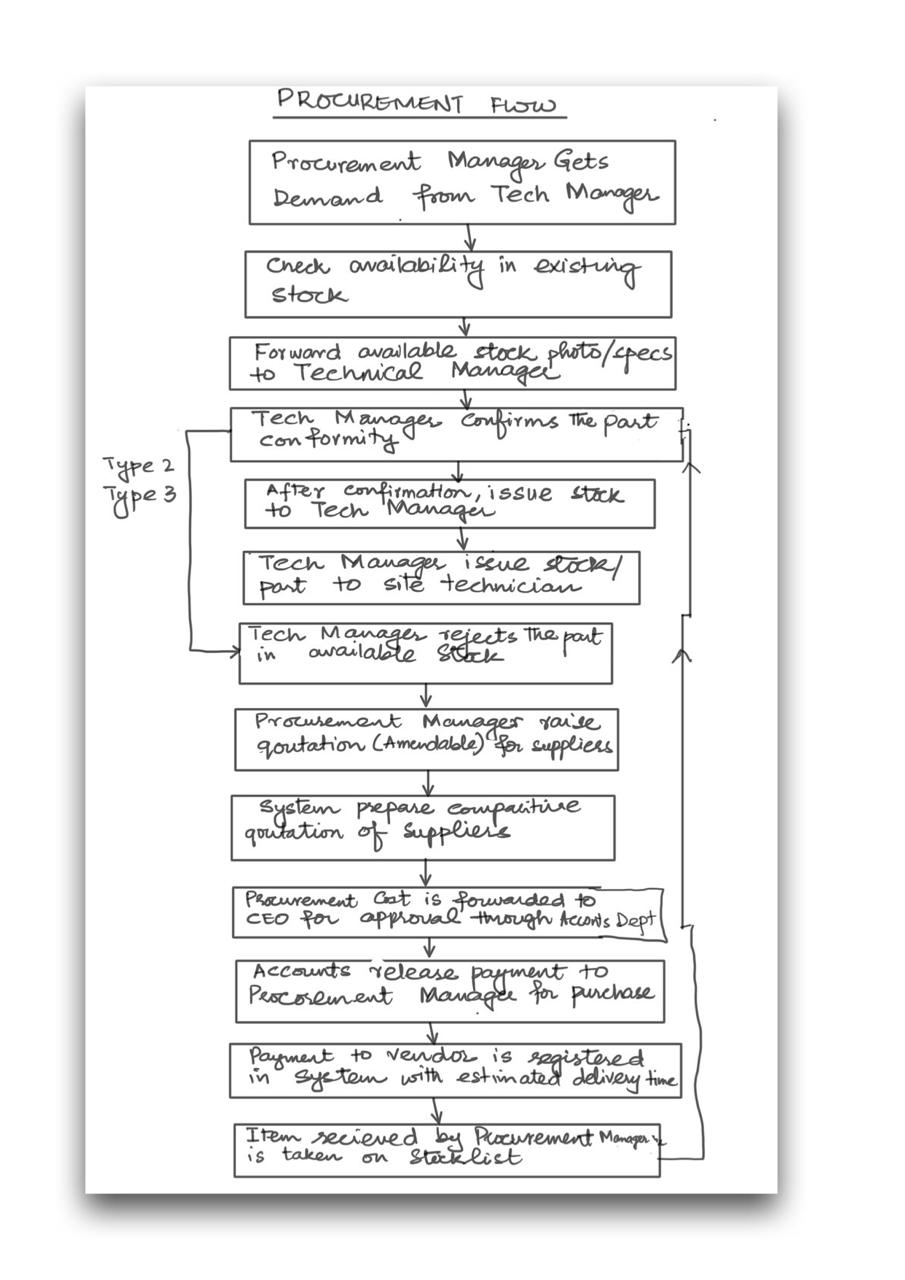 PROCUREMENT FLOW
Procurement Manager Gets
Demand from Tech Manager
Check availability in existing
stock
Forward available stock photo/specs
to Technical Manager
Tech Manager confirms the part
conformity
Type 2
Type 3
After confirmation, issue stock
to Tech Manager
Tech Manager issue stock/
part to site technician
Tech Manager rejects the part
in available stock
Procurement Manager raise
qoutation (Amendable) for suppliers
System prepare compaitive
qoutation of suppliers
Procurement Cost is forwarded to
CEO for approval through Accounts Dept
Accounts release payment to
Procorement Manager for purchase
Payment to vendor is registered
in system with estimated delivery time
Item recieved by Procurement Manager
is taken on Stocklist